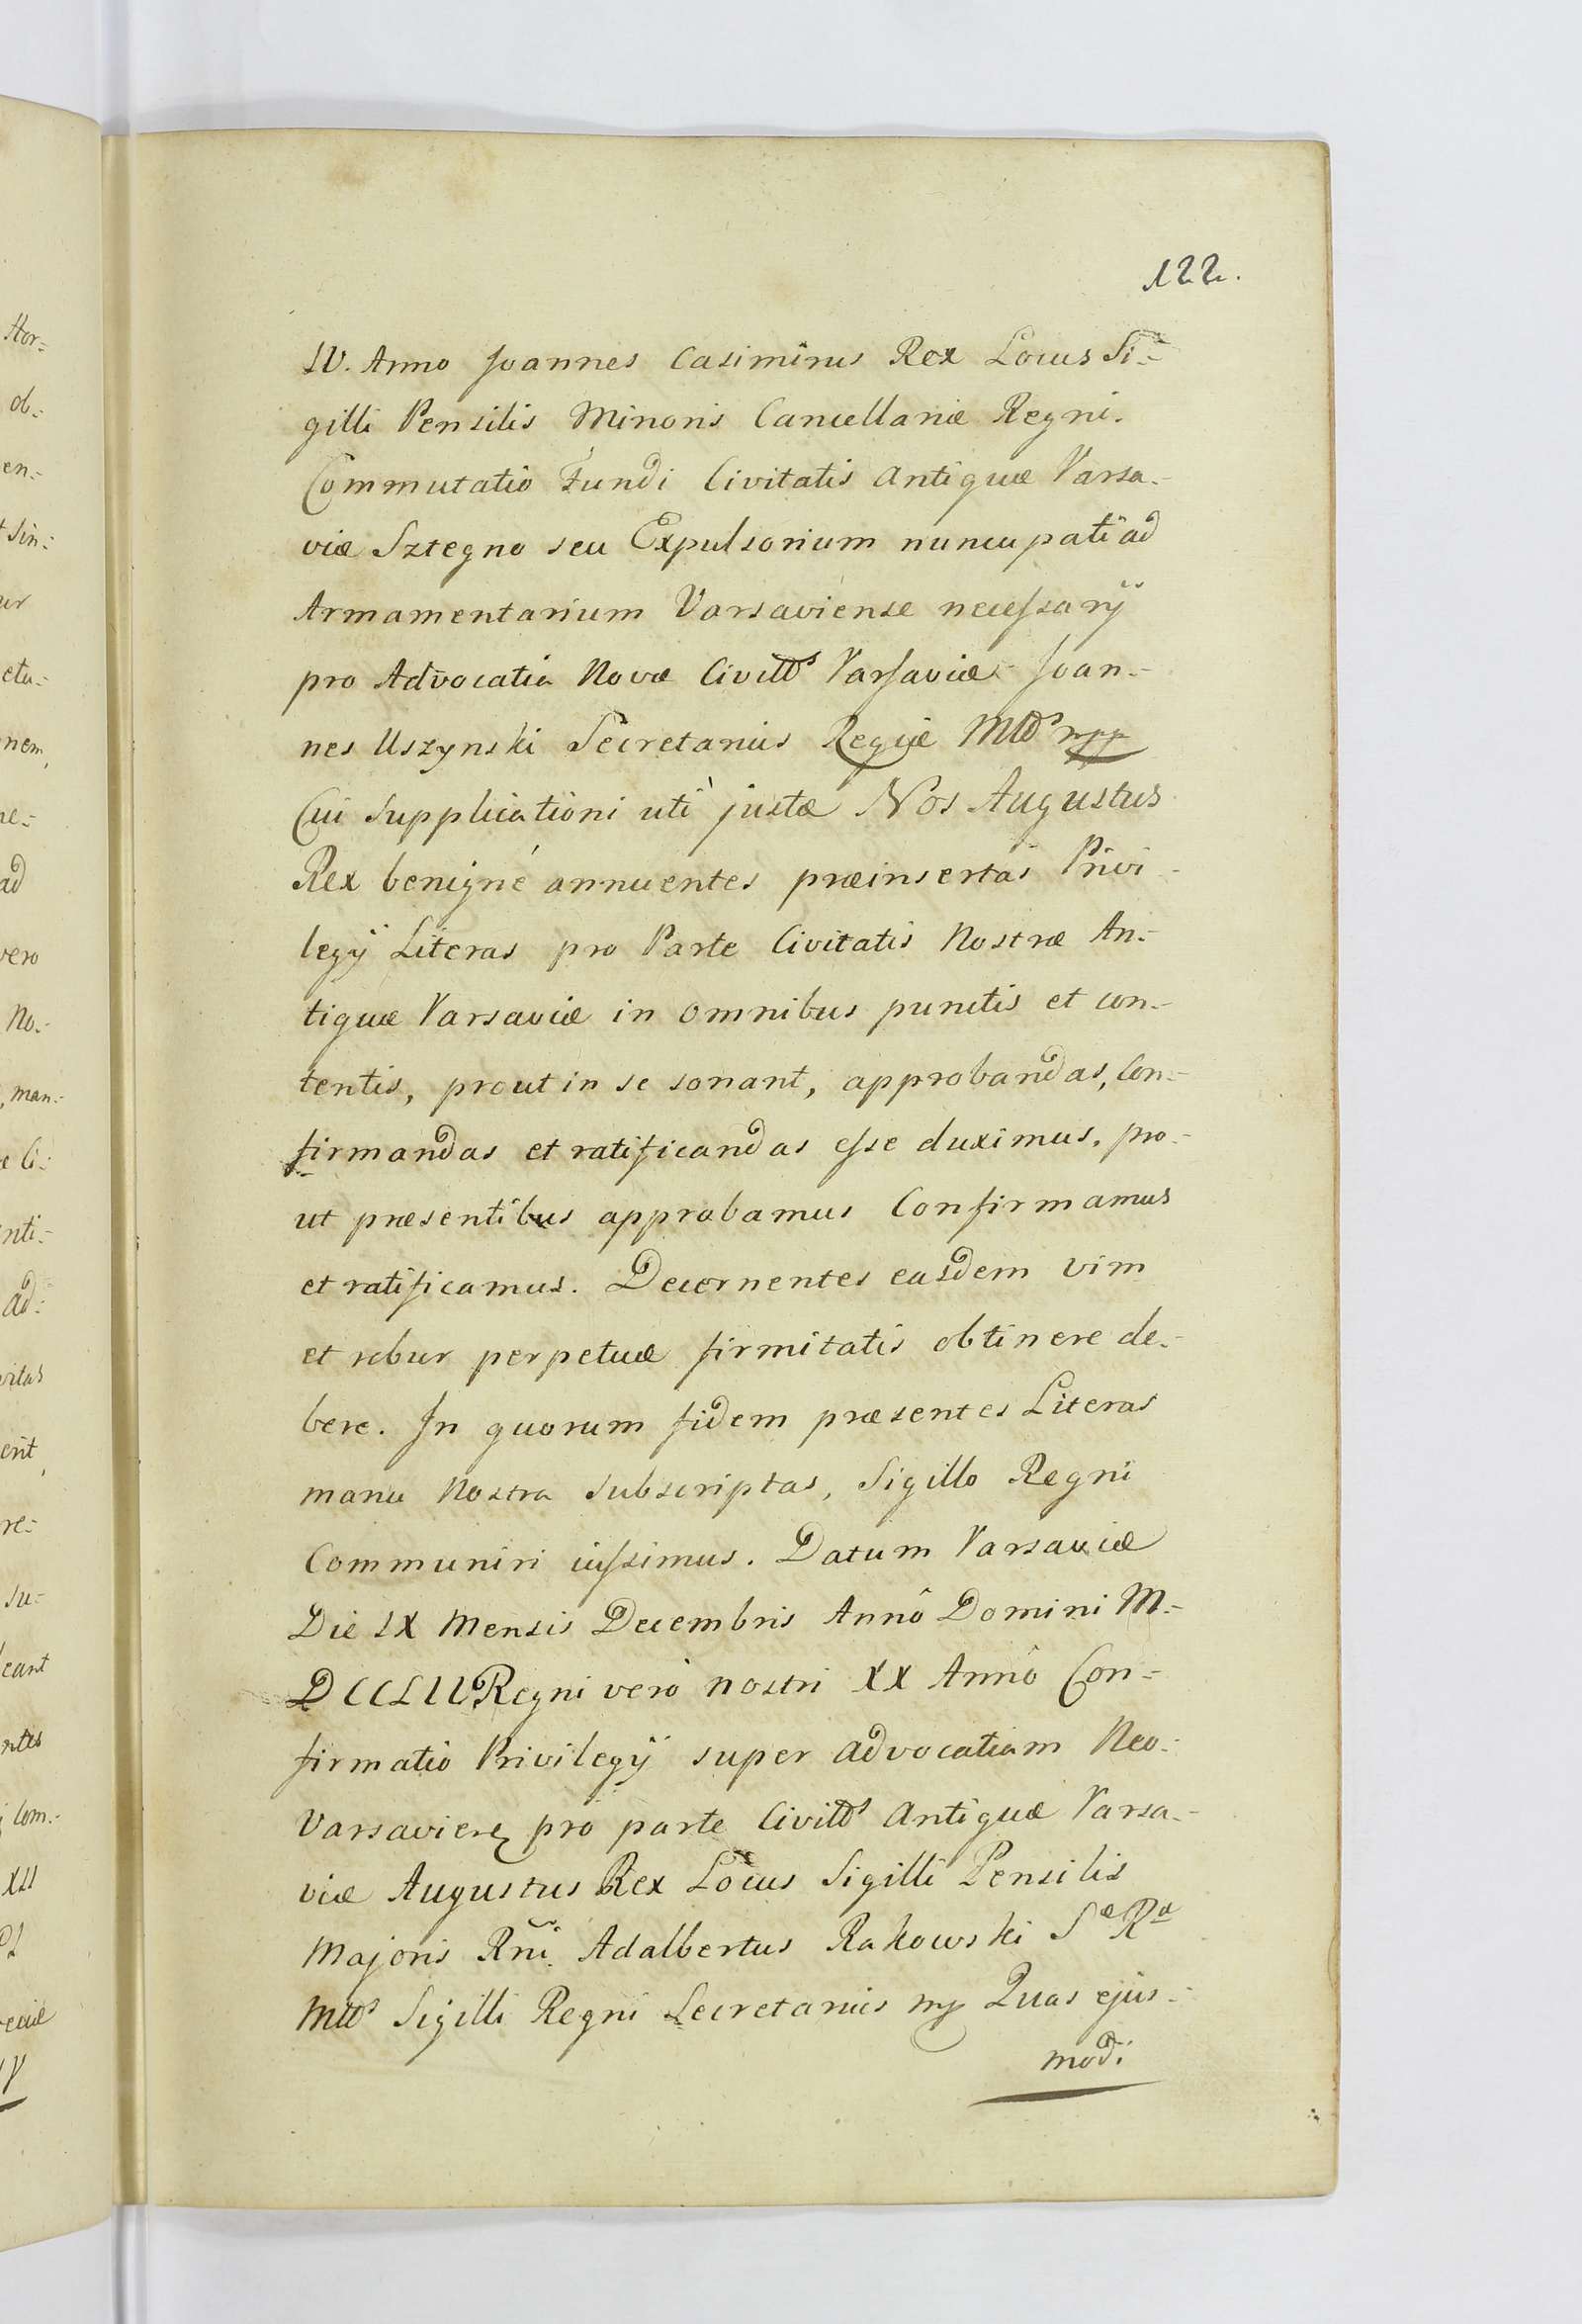 122.
IV. Anno Joannes Casimirus Rex Locus Si=
gilli Pensilis Minoris Cancellariæ Regni.
Commutatio Fundi Civitatis Antiquæ Varsa=
viæ Sztegno seu Expulsorium nuncupati ad
Armamentarium Varsaviense necessarÿ
pro Advocatia Novæ Civittis Varsaviæ Joan=
nes Uszynski Secretarius Regiæ Mttis mpp
Cui Supplicationi uti justæ Nos Augustus
Rex benigné annuentes præinsertas Privi=
legÿ Literas pro Parte Civitatis Nostræ An=
tiquæ Varsaviæ in omnibus punctis et con=
tentis, prout in se sonant, approbandas, Con=
firmandas et ratificandas esse duximus, pro=
ut præsentibus approbamus Confirmamus
et ratificamus. Decernentes easdem vim
et robur perpetuæ firmitatis obtinere de=
bere. In quorum fidem præsentes Literas
manu Nostra Subscriptas, Sigillo Regni
Communiri iussimus. Datum Varsaviæ
Die IX Mensis Decembris Annô Domini M=
DCCLII Regni verò nostri XX Annô Con=
firmatio Privilegÿ super advocatiam Neo=
Varsavien pro parte Civittis Antiquæ Varsa=
viæ Augustus Rex Locus Sigilli Pensilis
Majoris Rni Adalbertus Rakowski Sæ Ræ
Mttis Sigilli Regni Secretarius mp Quas ejus=
modi
Hor=
ob=
en=
t sin=
ur
cta=
nem,
ne=
ad
vero
No=
, man=
Ci=
nti=
ad=
vitas
erit,
re=
su=
eant
ntes
Com=
XII